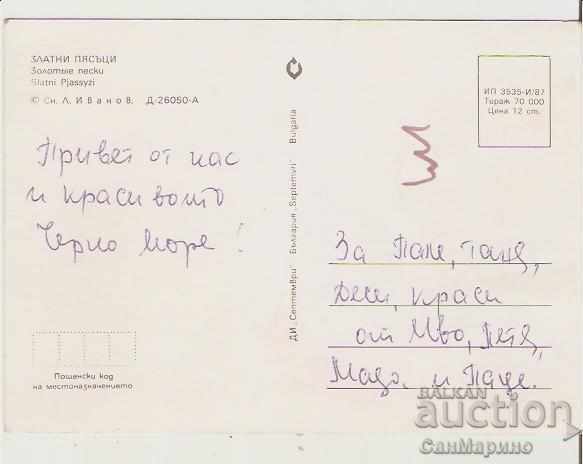 ЗЛАТНИ ПЯСЪЦИ
Золотые пески
Slatni Pjassyzi
© Сн. Л. Иванов. Д-26050-А
Привет от нас
и красивото
Черно море!
Пощенски код
на местоназначението
ДИ „Септември" България „Septemvri" Bulgaria
ИП 3535-И/87
Тираж 70 000
Цена 12 ст.
За Таня,
Деси, Краси
от Иво, Петя,
и
BALKAN
auction
СанМарино